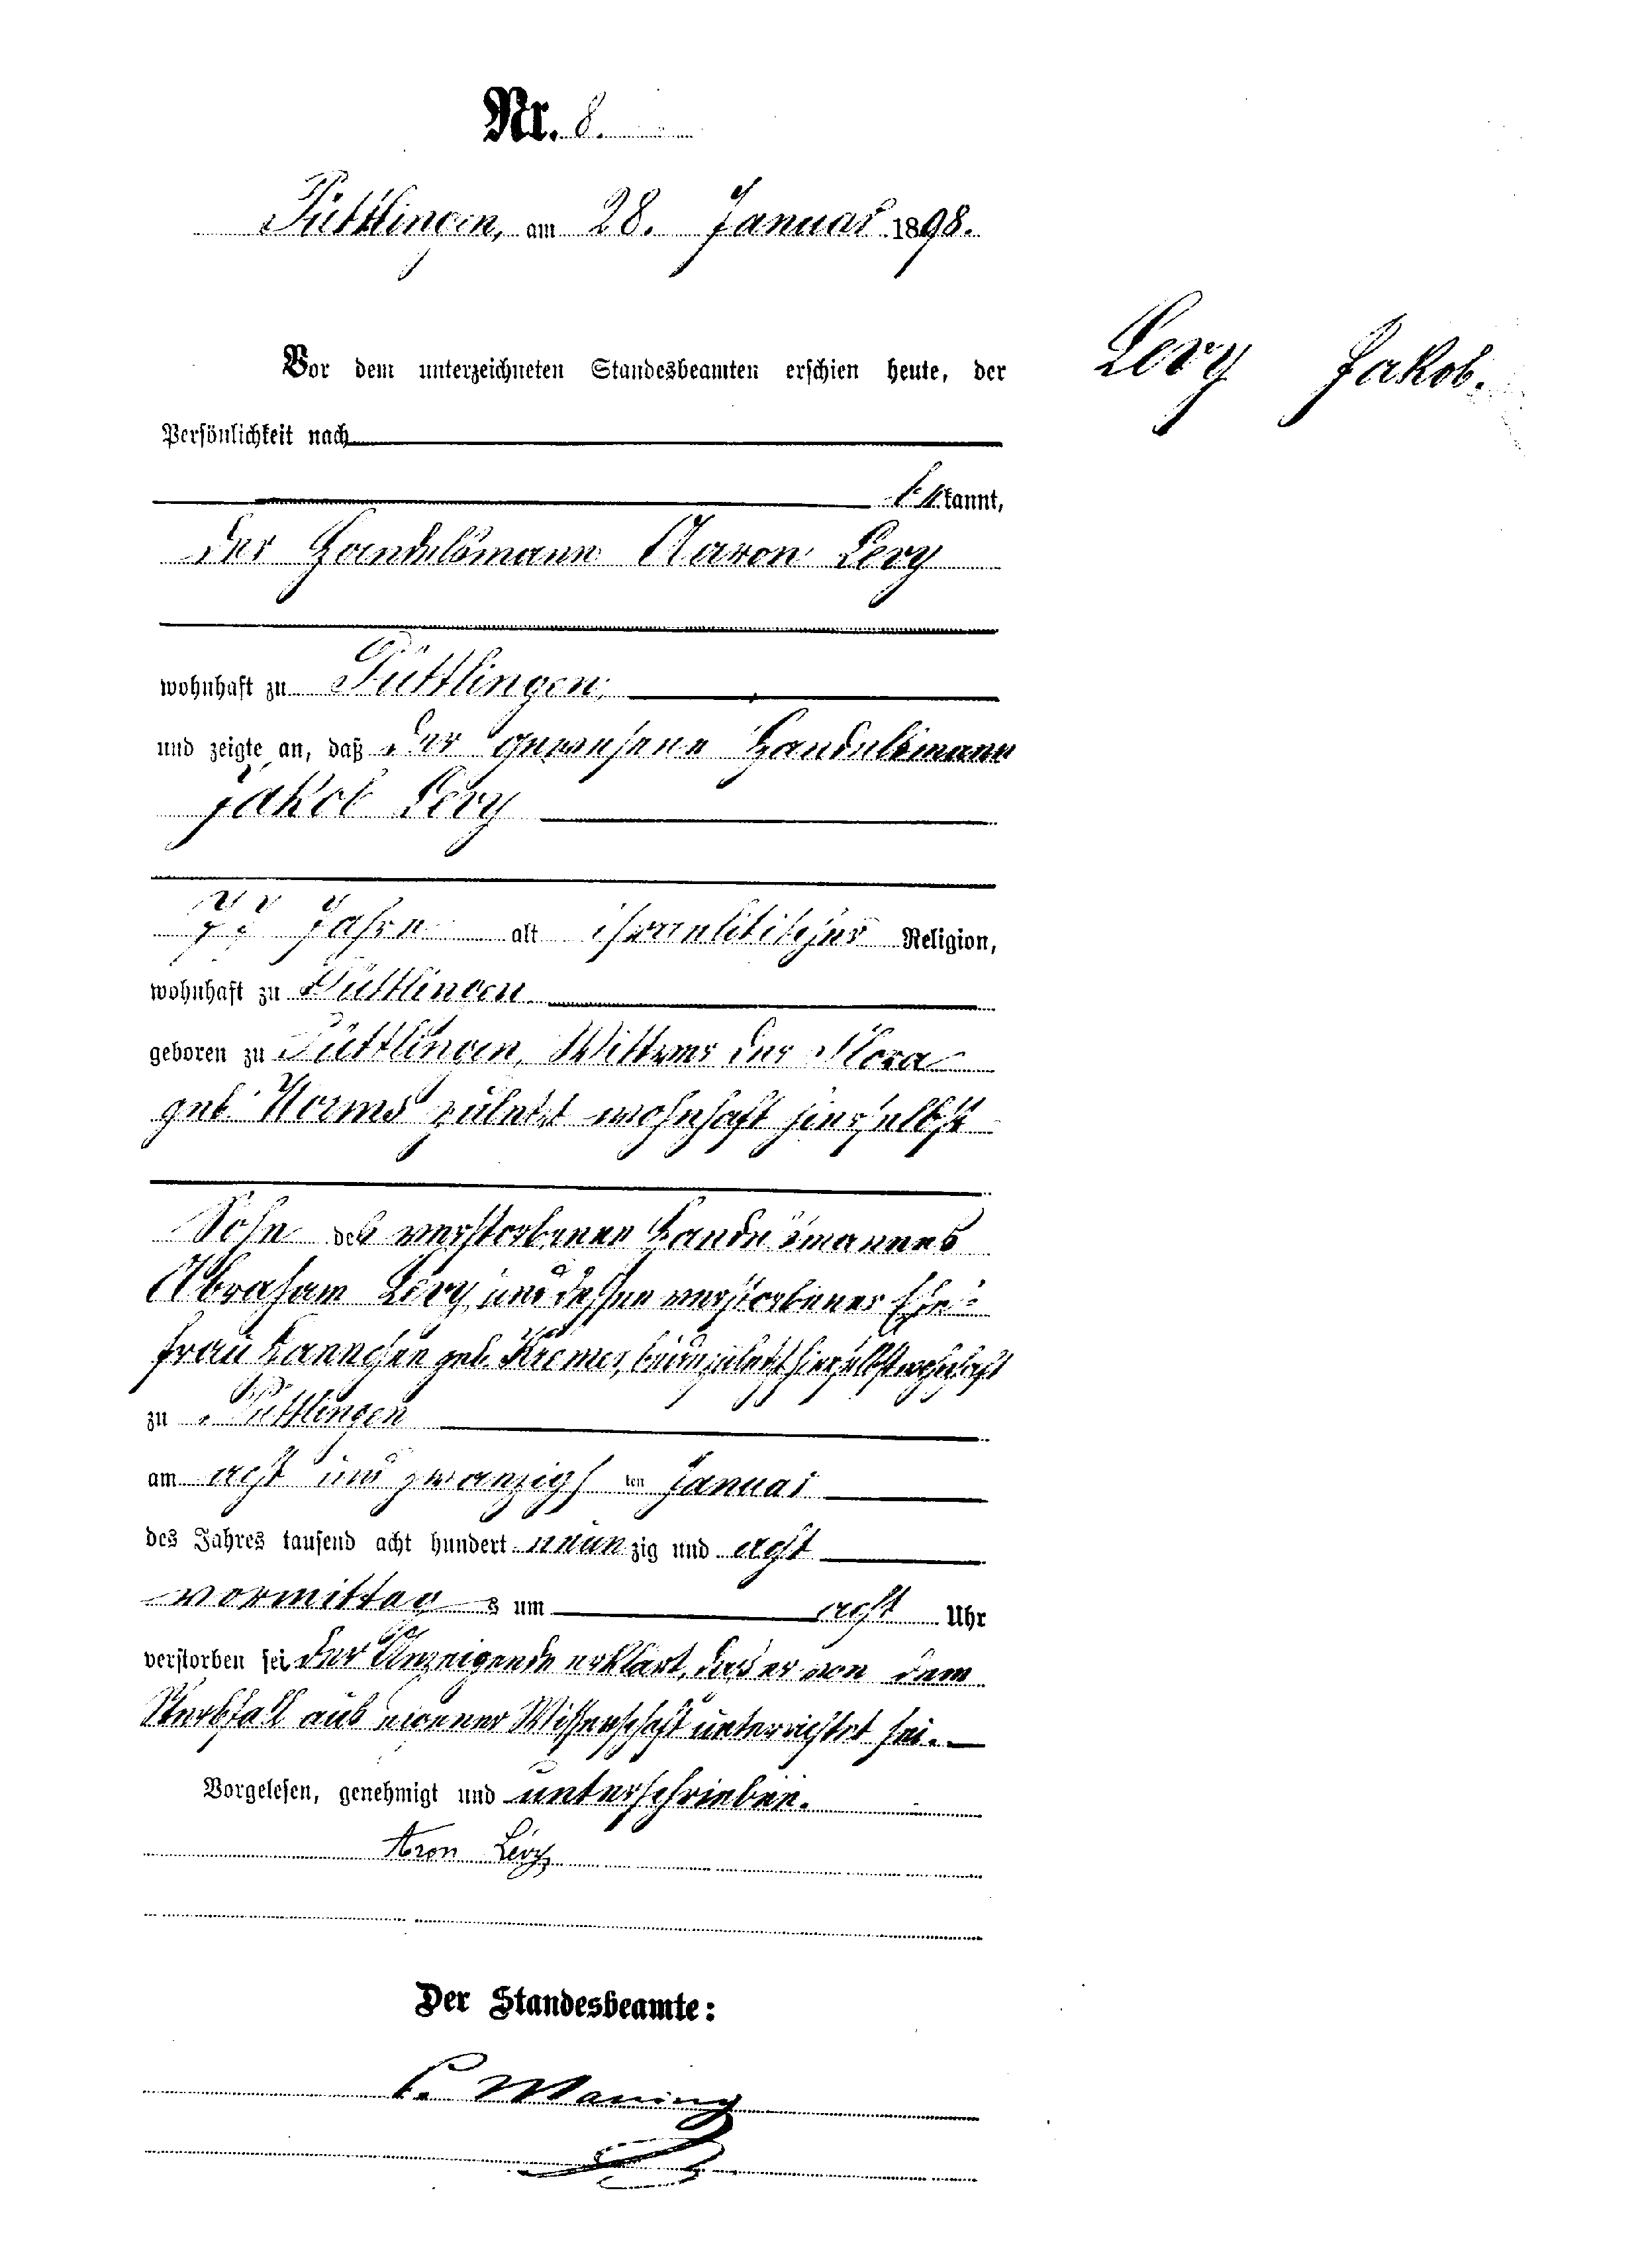 Nr. 8.
Püttlingen, am 28. Januar 1898.
Levy Jakob.
Vor dem unterzeichneten Standesbeamten erschien heute, der
Persönlichkeit nach
be kannt,
der Handelsmann Aaron Levy
wohnhaft zu Püttlingen,
und zeigte an, daß der gewesene Handelsmann
Jakob Levy
77 Jahre alt israelitischer Religion,
wohnhaft zu Püttlingen
geboren zu Püttlingen, Wittwer der
geb. Worms zuletzt wohnhaft hierselbst
Sohn des verstorbenen Handelsmannes
Abraham Levy und dessen verstorbener Ehe-
frau Hannchen geb. beide zuletzt hierselbst wohnhaft
zu Püttlingen
am acht und zwanzigs ten Januar
des Jahres tausend acht hundert neun zig und acht
vormittag s um acht Uhr
verstorben sei der Anzeigende erklärt, daß er von dem
Sterbfall aus eigener Wissenschaft unterrichtet sei.
Vorgelesen, genehmigt und unterschrieben.
Aron Lévy
Der Standesbeamte: